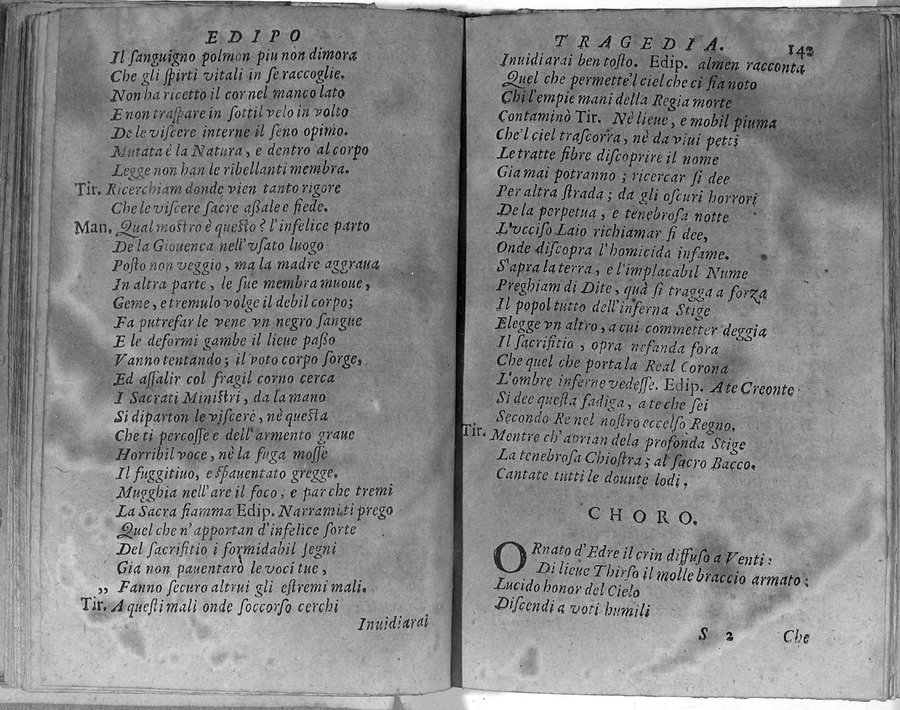 EDIPO
Il ſanguigno polmon piu non dimora
Che gli ſpirti vitali in ſe raccoglie.
Non ha ricetto il cor nel manco lato
E non traſpare in ſottil velo in volto
De le viſcere interne il ſeno opimo.
Mutata è la Natura, e dentro al corpo
Legge non han le ribellanti membra.
Tir. Ricerchiam donde vien tanto rigore
Che le viſcere ſacre aſſale e fiede.
Man. Qual moſtro è queſto? l'infelice parto
De la Giouenca nell'vſato luogo
Poſto non veggio, ma la madre aggraua
In altra parte, le ſue membra muoue,
Geme, e tremulo volge il debil corpo;
Fa putrefar le vene vn negro ſangue
E le deformi gambe il lieue paſſo
Vanno tentando; il voto corpo ſorge,
Ed aſſalir col fragil corno cerca
I Sacrati Miniſtri, da la mano
Si diparton le viſcere, nè queſta
Che ti percoſſe e dell'armento graue
Horribil voce, nè la fuga moſſe
Il fuggitiuo, e ſpauentato gregge.
Mugghia nell'are il foco, e par che tremi
La Sacra fiamma Edip. Narrami ti prego
Quel che n'apportan d'infelice ſorte
Del ſacrifitio i formidabil ſegni
Gia non pauentarò le voci tue,
„ Fanno ſecuro altrui gli eſtremi mali.
Tir. A queſti mali onde ſoccorſo cerchi
Inuidiarai
TRAGEDIA. 142
Inuidiarai ben toſto. Edip. almen racconta
Quel che permette'l ciel che ci ſia noto
Chi l'empie mani della Regia morte
Contaminò Tir. Nè lieue, e mobil piuma
Che'l ciel traſcorra, nè da viui petti
Le tratte fibre diſcoprire il nome
Gia mai potranno; ricercar ſi dee
Per altra ſtrada; da gli oſcuri horrori
De la perpetua, e tenebroſa notte
L'vcciſo Laio richiamar ſi dee,
Onde diſcopra l'homicida infame.
S'apra la terra, e l'implacabil Nume
Preghiam di Dite, quà ſi tragga a forza
Il popol tutto dell'inferna Stige
Elegge vn altro, a cui commetter deggia
Il ſacrifitio, opra nefanda fora
Che quel che porta la Real Corona
L'ombre inferne vedeſſe. Edip. A te Creonte
Si dee queſta fadiga, a te che ſei
Secondo Re nel noſtro eccelſo Regno.
Tir. Mentre ch'aprian dela profonda Stige
La tenebroſa Chioſtra; al ſacro Bacco.
Cantate tutti le douute lodi,
CHORO.
ORnato d'Edre il crin diffuſo a Venti:
Di lieue Thirſo il molle braccio armato;
Lucido honor del Cielo
Diſcendi a voti humili
S 2 Che